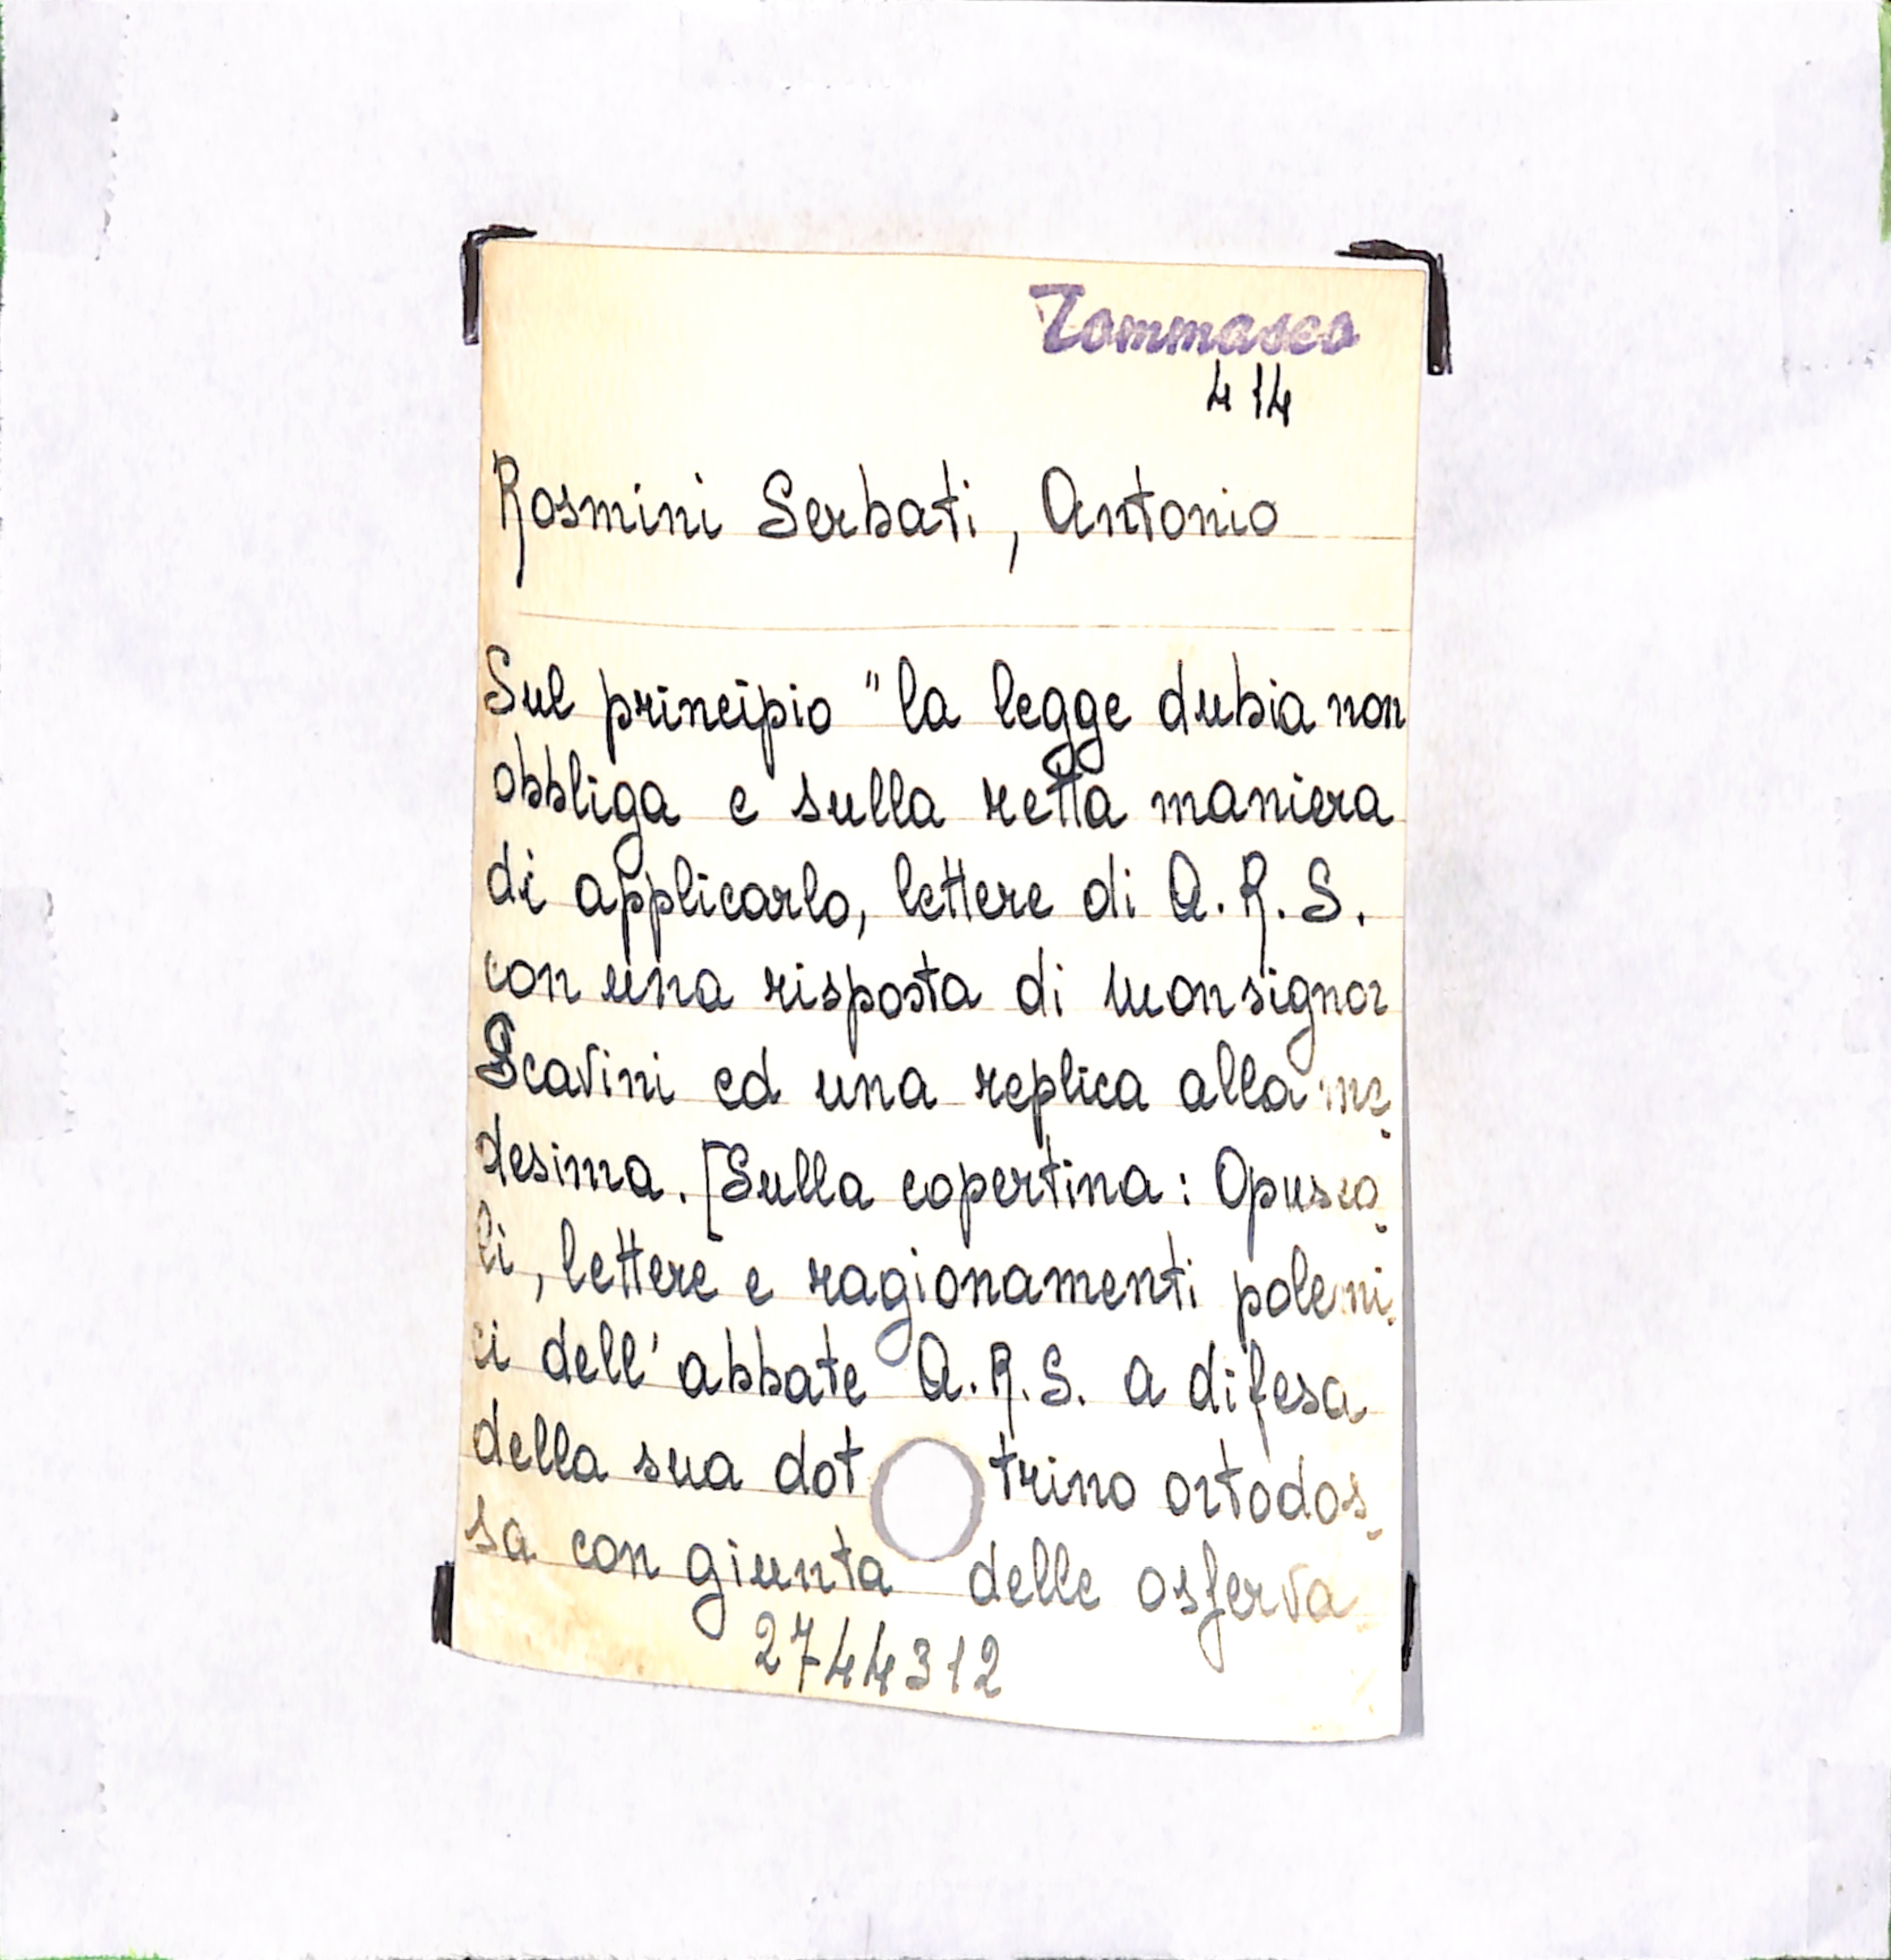 Tommaseo
414
Rosmini Serbati, Antonio
Sul principio "la legge dubia non
obbliga e sulla retta maniera
di applicarlo, lettere di A.R.S.
con una risposta di Monsignor
Scavini ed una replica alla me
desima. [Sulla copertina: Opusco
li, lettere e ragionamenti polemi
ci dell'abbate A.R.S. a difesa
della sua dot trina ortodos
sa con giunta delle osserva
2744312